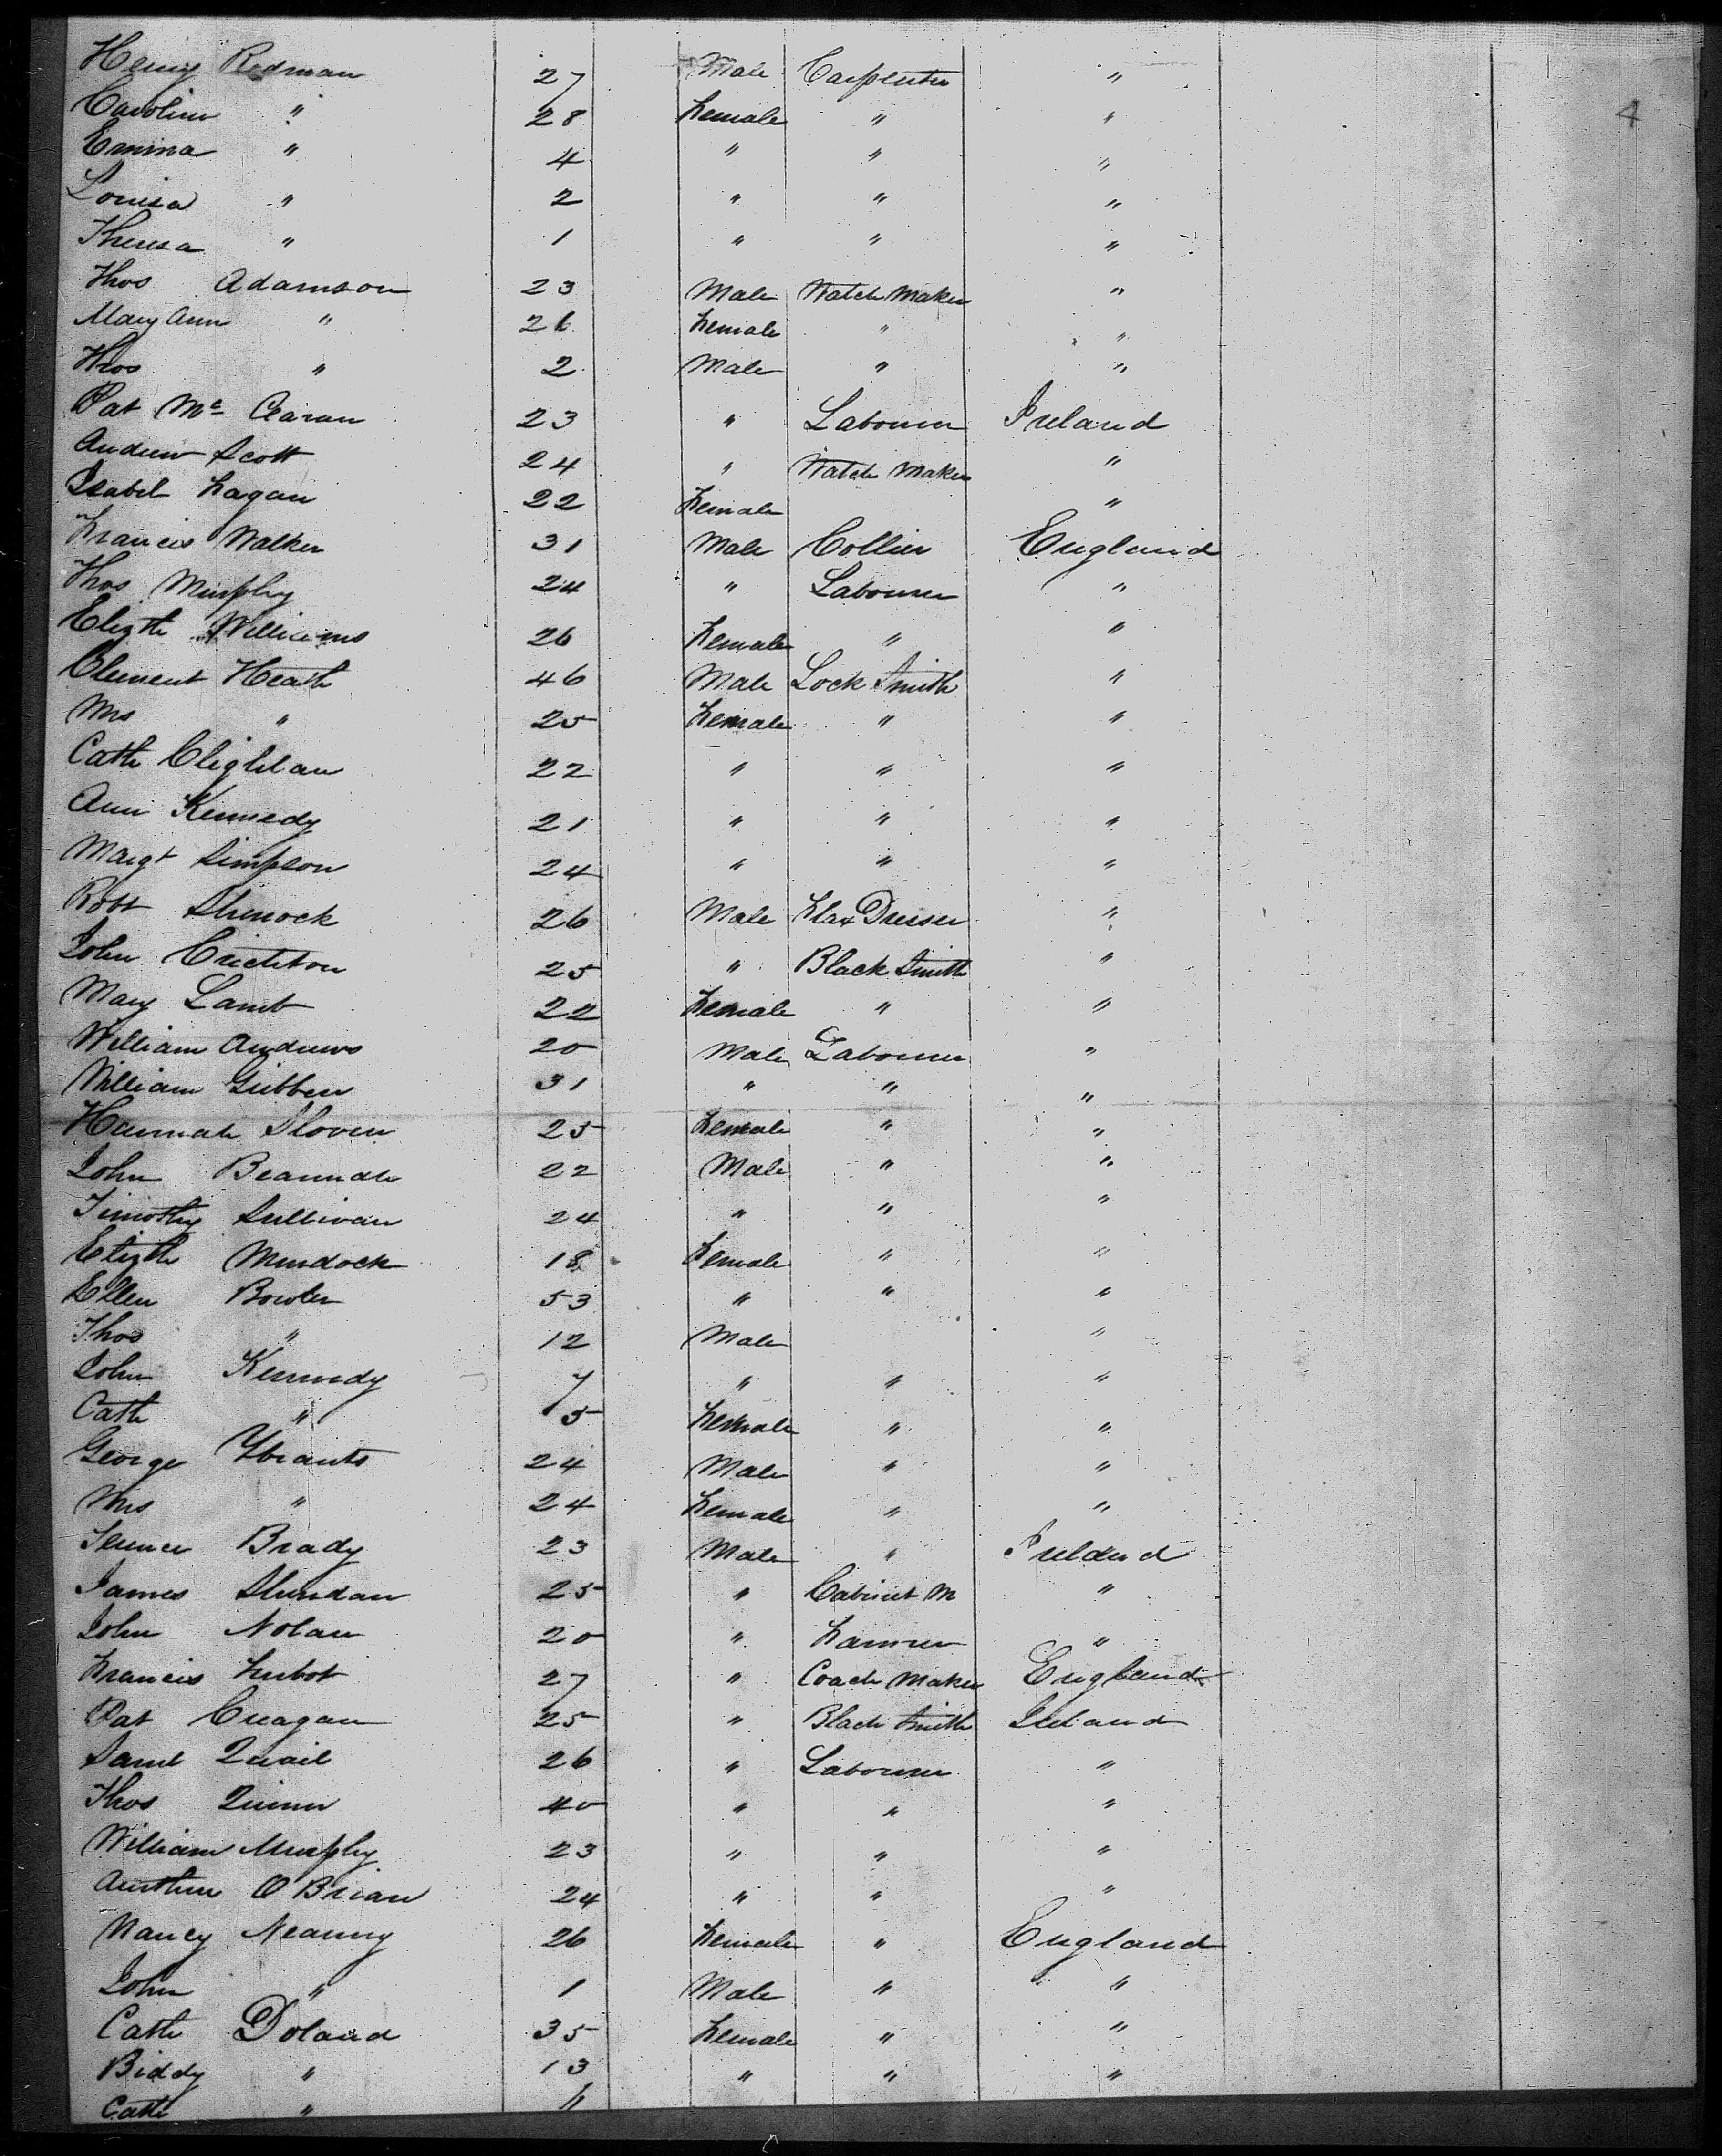 Henry Redman 27 Male Carpenter "
Caroline " 28 Female " "
Emma " 4 " " "
Louisa " 2 " " "
Theresa " 1 " " "
Thos Adamson 23 Male Watch Maker "
Mary Ann " 26 Female " "
Thos " 2 Male " "
Pat Mc 23 " Labourer Ireland
Andrew Scott 24 " Watch Maker "
Isabel Fagan 22 Female "
Francis Walker 31 Male Collier England
Thos Murphy 24 " Labourer "
Elizth Williams 26 Female " "
Clement Heath 46 Male Lock Smith "
Mrs " 25 Female " "
Cath 22 " " "
Ann Kennedy 21 " " "
Margt Simpson 24 " " "
Robt 26 Male Flax Dresser "
John Crichton 25 " Black Smith "
Mary Lamb 22 Female " "
William Andrews 20 Male Labourer "
William 31 " " "
Hannah 25 Female " "
John 22 Male " "
Timothy Sullivan 24 " " "
Elizth Murdock 18 Female " "
Ellen Bowler 53 " " "
Thos " 12 Male "
John Kennedy 7 " " "
Cath " 5 Female " "
George 24 Male " "
Mrs " 24 Female " "
Terence Brady 23 Male " Ireland
James Sheridan 25 " Cabinet M "
John Nolan 20 " Farmer "
Francis 27 " Coach Maker England
Pat Creagan 25 " Black Smith Ireland
Saml Quail 26 " Labourer "
Thos Quinn 40 " " "
William Murphy 23 " " "
O Brian 24 " " "
Nancy 26 Female " England
John " 1 Male " "
Cath Doland 35 Female " "
Biddy " 13 " " "
Cath "
4